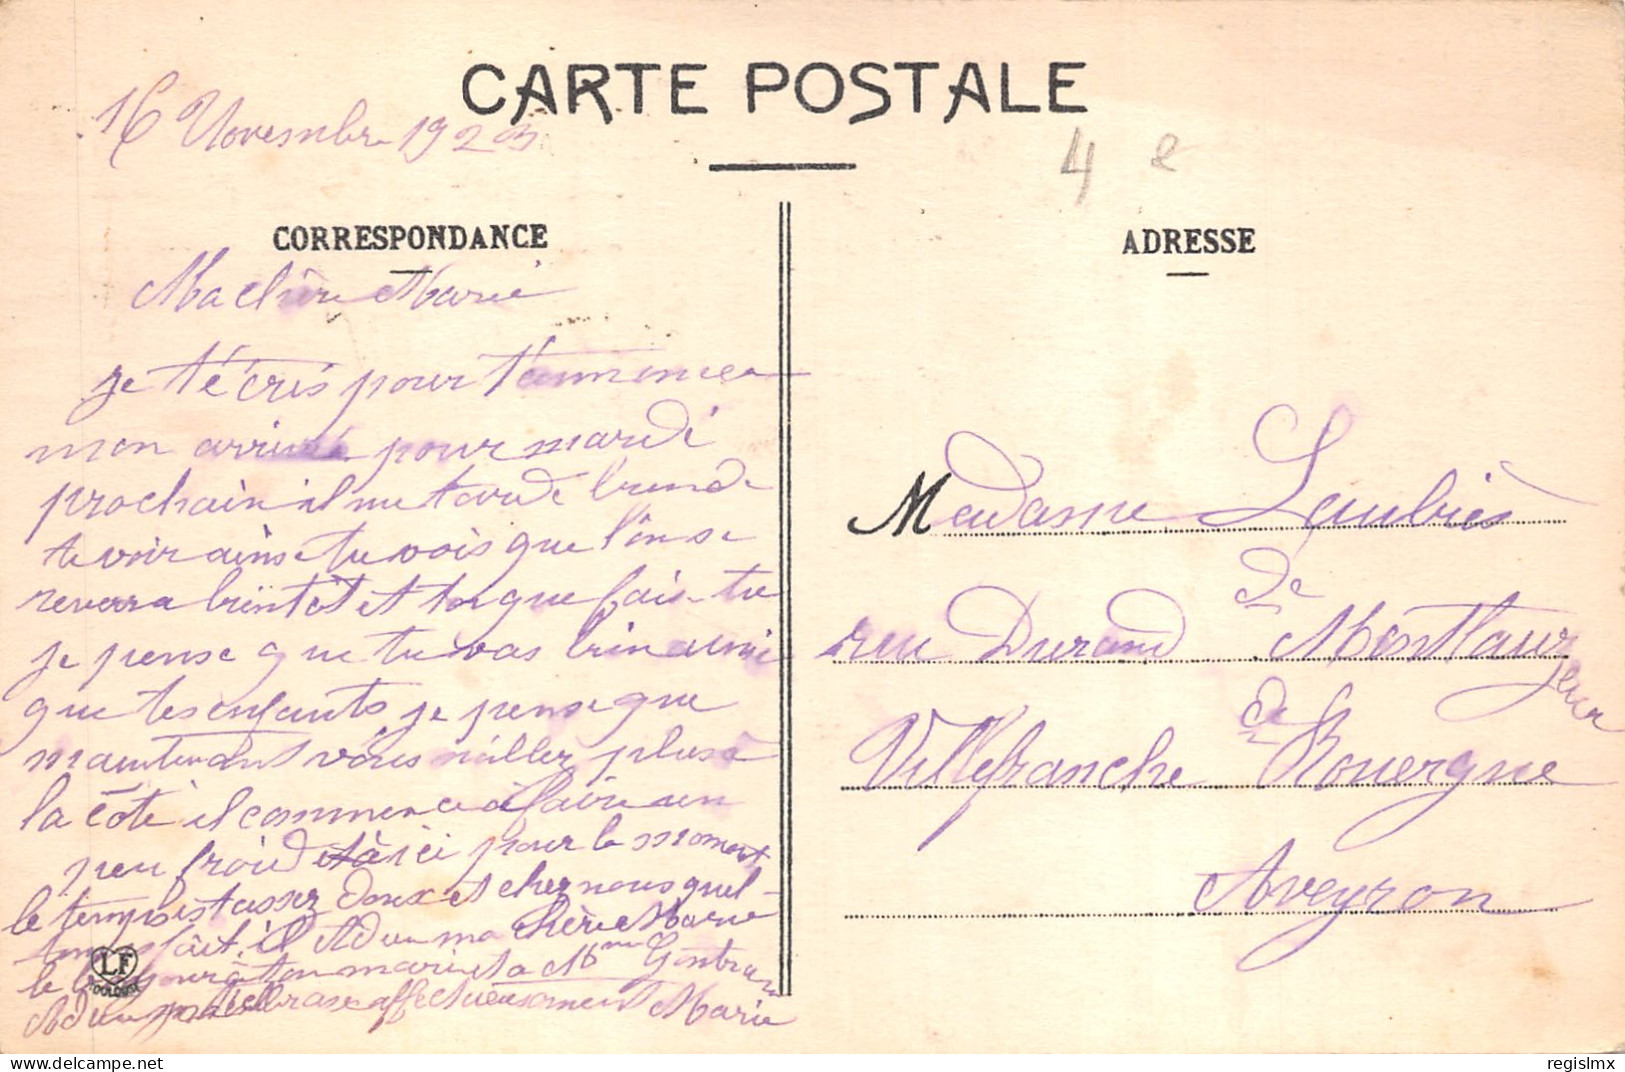 CARTE POSTALE
16 Novembre 1923
4 e
CORRESPONDANCE
Ma chère Marie
je técris pour t'annoncer
mon arrivée pour mardi
prochain il me tarde bien de
te voir ainsi tu vois que l'on se
reverra bientôt et torque fais-tu
je pense que tu vas bien ainsi
que tes enfants je pense que
maintenant vous n'aller plus à
la côte il commence à faire un
peu froid et à ici pour le moment
le temps est assez doux et chez nous quel
temps fait-il Adieu ma chère Marie
le bonjour à ton mari et a Mme Gontran
Adieu je t'embrasse affectueusement Marie
LF
TOULOUSE
ADRESSE
Madame Laubiès
rue Durand de Montlauzeur
Villefranche de Rouergue
Aveyron
regislmx